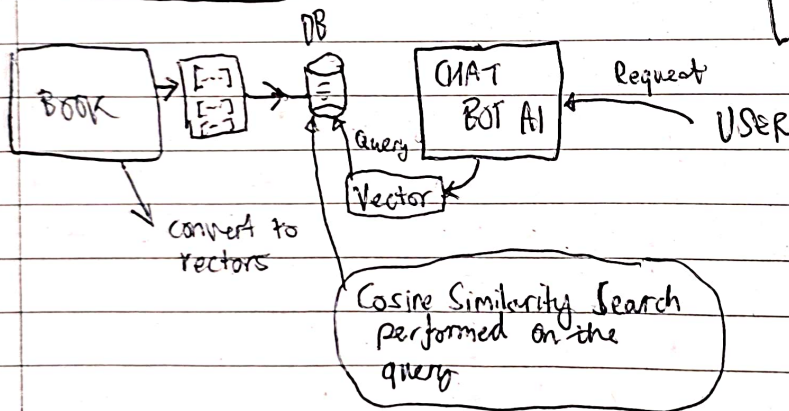 DB
BOOK
[---]
[---]
[---]
CHAT
BOT AI
Request
USER
Query
Vector
convert to
vectors
Cosine Similarity Search
performed on the
query